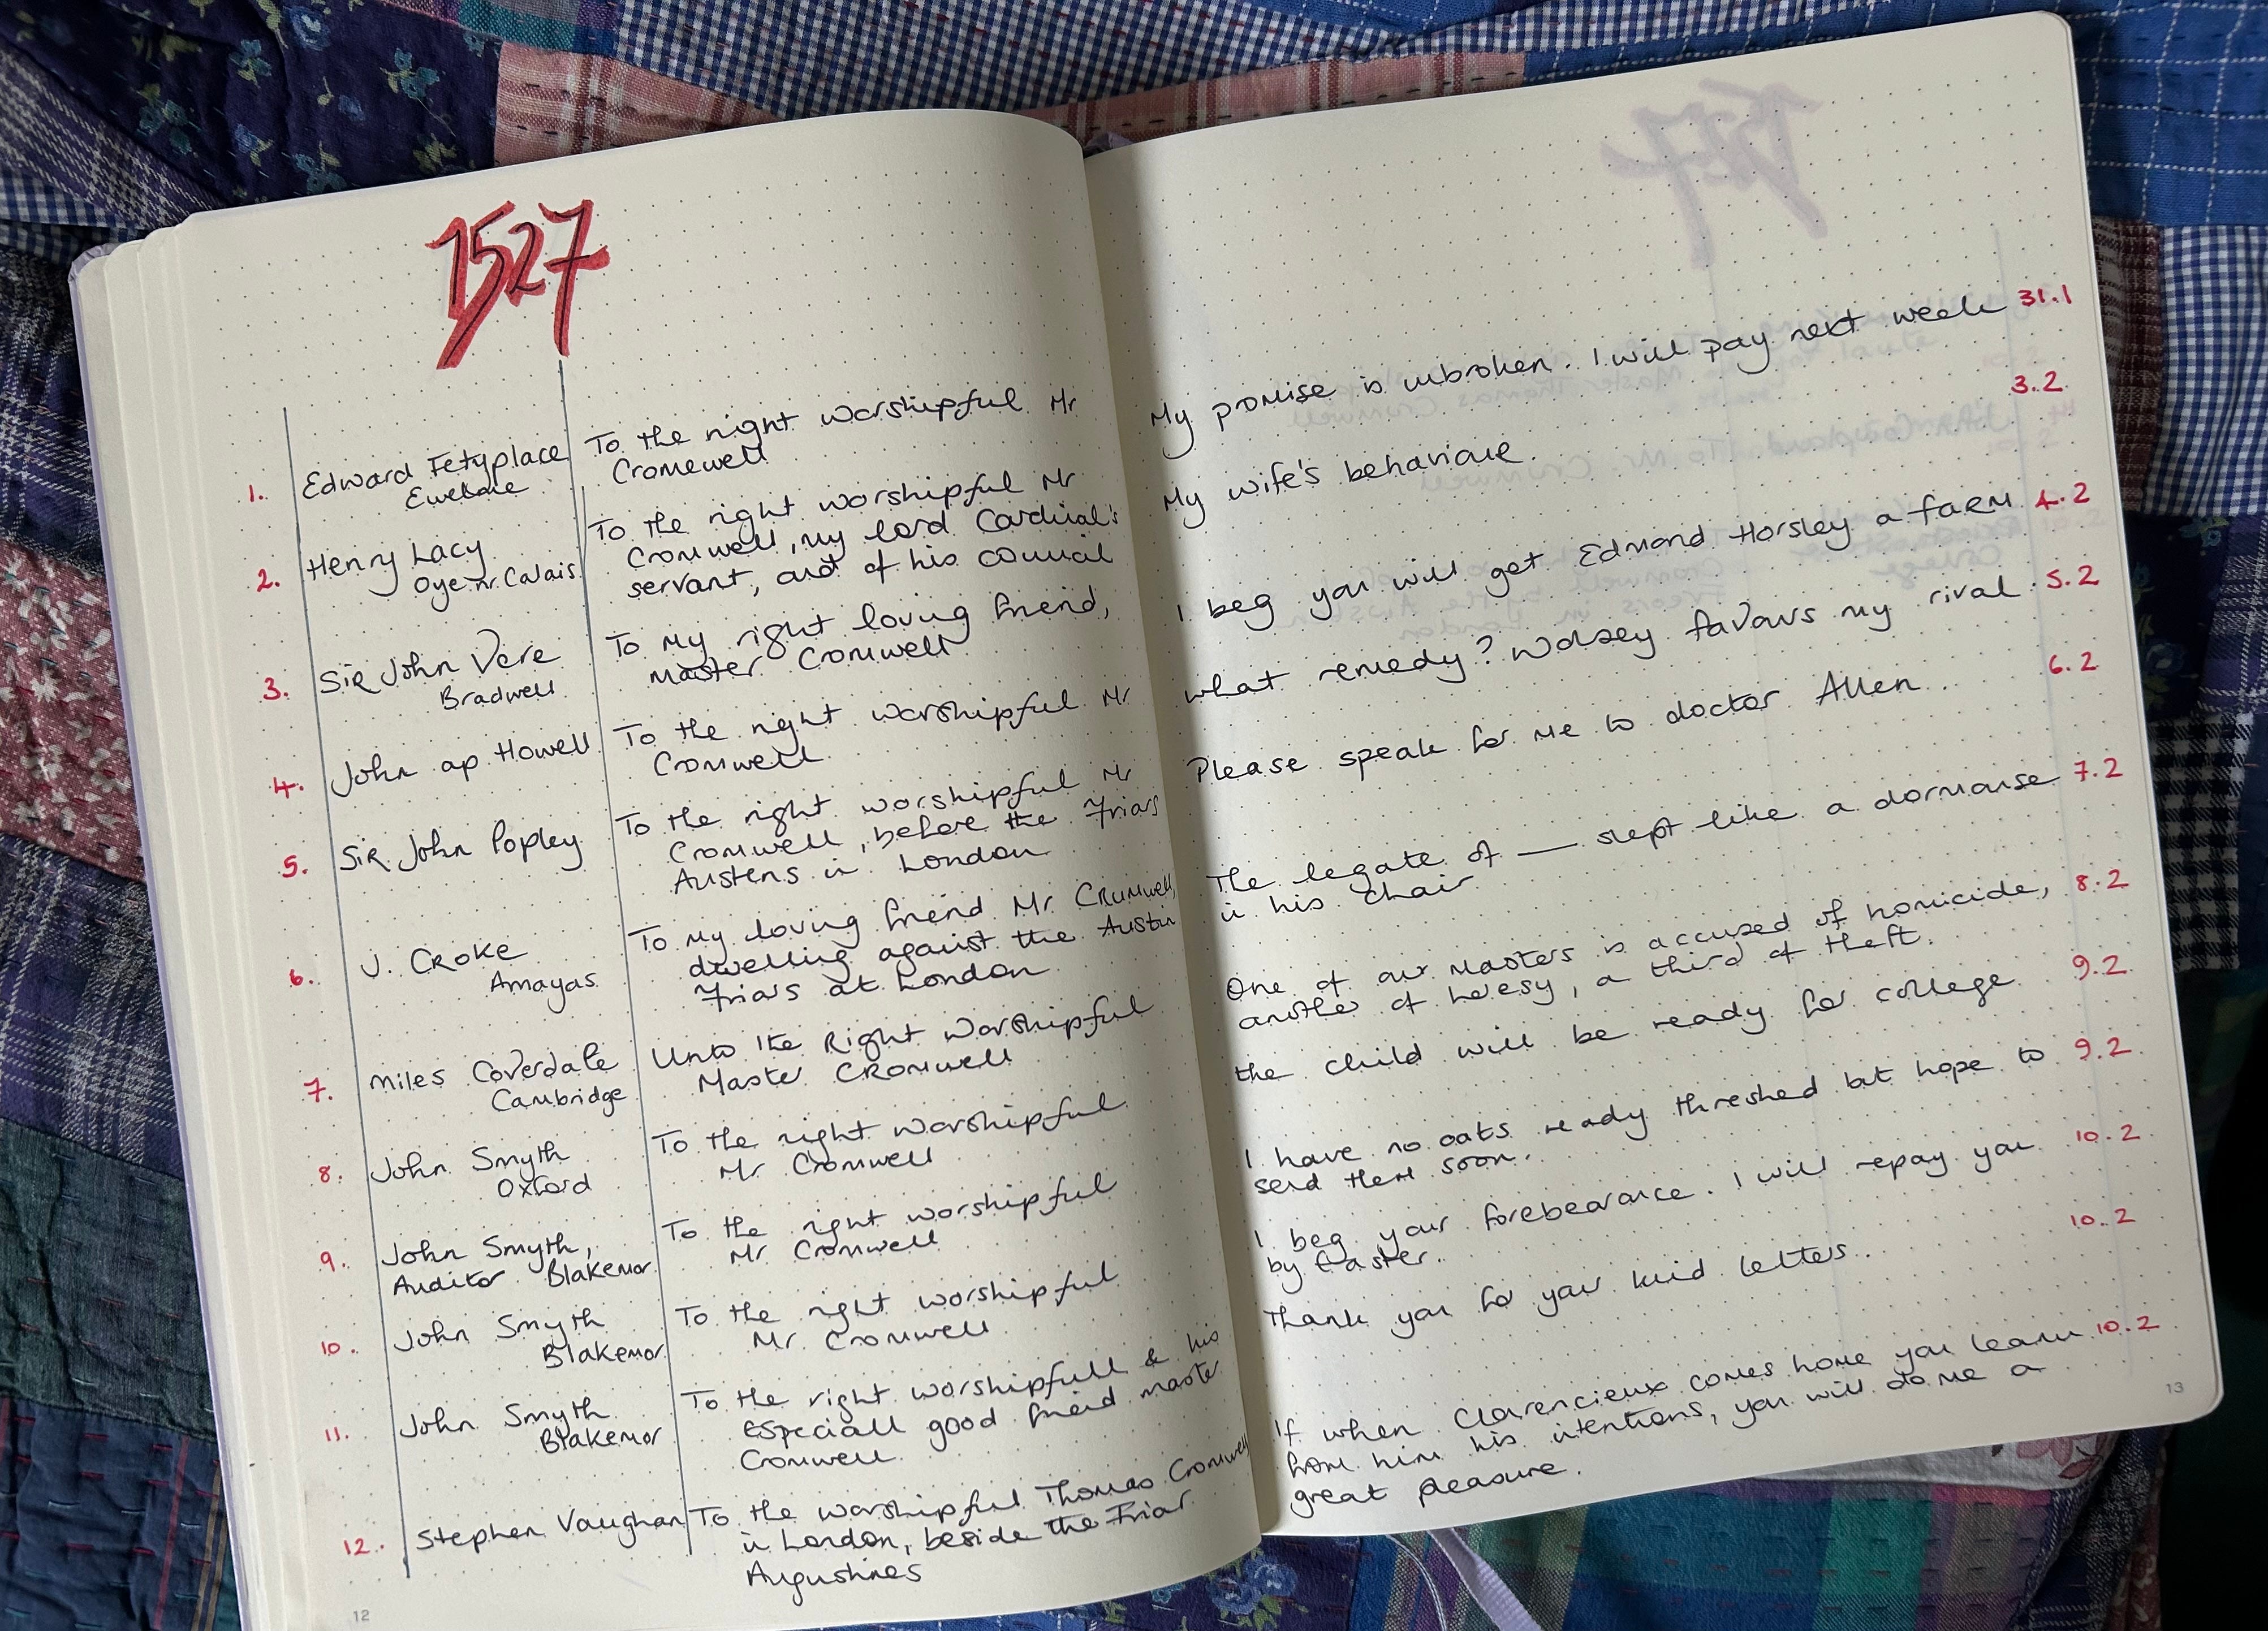 1527
1. Edward Fetyplace
Ewelme
To the right worshipful Mr
Cromewell
My promise is unbroken. I will pay next week 31.1
2. Henry Lacy
Oye nr. Calais
To the right worshipful Mr
Cromwell, my lord Cardinal's
servant, and of his council
My wife's behaviour. 3.2
3. Sir John Vere
Bradwell
To my right loving friend,
Master Cromwell
I beg you will get Edmond Horsley a farm 4.2
4. John ap Howell
To the right worshipful Mr
Cromwell
What remedy? Wolsey favours my rival 5.2
5. Sir John Popley
To the right worshipful Mr
Cromwell, before the Friars
Austens in London
Please speak for me to doctor Allen. 6.2
6. J. Croke
Amayas
To my loving friend Mr Crumwell,
dwelling against the Austin
Friars at London
The legate of — slept like a dormouse 7.2
in his chair
7. Miles Coverdale
Cambridge
Unto the Right Worshipful
Master Cromwell
One of our Masters is accused of homicide, 8.2
another of heresy, a third of theft.
8. John Smyth
Oxford
To the right worshipful
Mr Cromwell
the child will be ready for college 9.2
9. John Smyth,
Auditor Blakemor
To the right worshipful
Mr Cromwell
I have no oats ready threshed but hope to 9.2
send them soon.
10. John Smyth
Blakemor
To the right worshipful
Mr. Cromwell
I beg your forebearance. I will repay you 10.2
by Easter.
11. John Smyth
Blakemor
To the right worshipfull & his
especiall good freind master
Cromwell
Thank you for your kind letters. 10.2
12. Stephen Vaughan
To the worshipful Thomas Cromwell
in London, beside the Friar
Augustines
If when Clarencieux comes home you learn 10.2
from him his intentions, you will do me a
great pleasure.
12
13